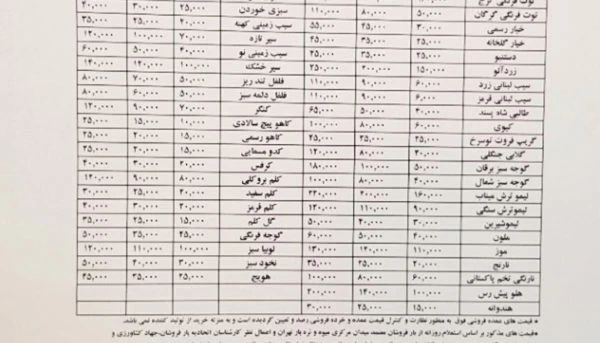 توت فرنگی گرگان ۵۰,۰۰۰ ۸۰,۰۰۰ ۱۱۰,۰۰۰ سبزی خوردن ۲۵,۰۰۰ ۳۰,۰۰۰ ۴۰,۰۰۰
خیار رسمی ۳۰,۰۰۰ ۴۵,۰۰۰ ۵۵,۰۰۰ سیب زمینی کهنه ۲۰,۰۰۰ ۲۵,۰۰۰ ۳۵,۰۰۰
خیار گلخانه ۲۵,۰۰۰ ۳۵,۰۰۰ ۴۵,۰۰۰ سیر تازه ۷۰,۰۰۰ ۱۰۰,۰۰۰ ۱۲۰,۰۰۰
دستنبو سیب زمینی نو ۴۰,۰۰۰ ۵۰,۰۰۰ ۶۰,۰۰۰
زردآلو ۱۵۰,۰۰۰ ۲۰۰,۰۰۰ ۲۵۰,۰۰۰ سیر خشک ۱۰۰,۰۰۰ ۱۴۰,۰۰۰
سیب لبنانی زرد ۶۰,۰۰۰ ۹۰,۰۰۰ ۱۱۰,۰۰۰ فلفل تند ریز ۵۰,۰۰۰ ۶۰,۰۰۰ ۸۰,۰۰۰
سیب لبنانی قرمز ۹۰,۰۰۰ ۱۱۰,۰۰۰ فلفل دلمه سبز ۵۰,۰۰۰ ۶۰,۰۰۰ ۸۰,۰۰۰
طالبی شاه پسند ۵۰,۰۰۰ ۶۵,۰۰۰ کنگر ۷۰,۰۰۰ ۹۰,۰۰۰ ۱۲۰,۰۰۰
کیوی ۶۰,۰۰۰ ۸۰,۰۰۰ ۱۰۰,۰۰۰ کاهو پیچ سالادی ۱۰,۰۰۰ ۱۵,۰۰۰ ۲۵,۰۰۰
گریپ فروت توسرخ ۲۵,۰۰۰ ۳۵,۰۰۰ ۴۵,۰۰۰ کاهو رسمی ۱۵,۰۰۰ ۲۰,۰۰۰ ۲۵,۰۰۰
گلابی جنگلی ۴۰,۰۰۰ ۸۰,۰۰۰ ۱۲۰,۰۰۰ کدو مسمایی ۱۵,۰۰۰ ۲۰,۰۰۰ ۲۵,۰۰۰
گوجه سبز برقان ۵۰,۰۰۰ ۱۰۰,۰۰۰ ۱۸۰,۰۰۰ کرفس ۲۰,۰۰۰ ۳۰,۰۰۰ ۴۰,۰۰۰
گوجه سبز شمال ۴۰,۰۰۰ ۸۰,۰۰۰ ۱۰۰,۰۰۰ کلم بروکلی ۸۰,۰۰۰ ۹۰,۰۰۰ ۱۲۰,۰۰۰
لیمو ترش میناب ۱۶۰,۰۰۰ ۲۰۰,۰۰۰ ۲۲۰,۰۰۰ کلم سفید ۲۰,۰۰۰ ۳۰,۰۰۰ ۴۰,۰۰۰
لیموترش سنگی ۹۰,۰۰۰ ۱۱۰,۰۰۰ ۱۲۰,۰۰۰ کلم قرمز ۲۰,۰۰۰ ۳۰,۰۰۰ ۴۰,۰۰۰
لیموشیرین ۳۰,۰۰۰ ۴۰,۰۰۰ ۵۰,۰۰۰ گل کلم ۱۵,۰۰۰ ۲۵,۰۰۰ ۳۵,۰۰۰
ملون ۲۰,۰۰۰ ۴۰,۰۰۰ ۶۰,۰۰۰ گوجه فرنگی ۲۵,۰۰۰ ۳۵,۰۰۰ ۵۰,۰۰۰
موز ۱۱۰,۰۰۰ ۱۲۰,۰۰۰ ۱۳۰,۰۰۰ لوبیا سبز ۱۰۰,۰۰۰ ۱۱۰,۰۰۰ ۱۲۰,۰۰۰
نارنج ۲۰,۰۰۰ ۳۰,۰۰۰ ۳۵,۰۰۰ نخود سبز ۳۰,۰۰۰ ۴۰,۰۰۰ ۵۰,۰۰۰
نارنگی تخم پاکستانی ۶۰,۰۰۰ ۸۰,۰۰۰ ۱۰۰,۰۰۰ هویج ۲۵,۰۰۰ ۳۵,۰۰۰ ۴۵,۰۰۰
هلو پیش رس ۱۰۰,۰۰۰ ۱۴۰,۰۰۰ ۲۰۰,۰۰۰
هندوانه ۱۵,۰۰۰ ۲۵,۰۰۰ ۳۰,۰۰۰
*قیمت های عمده فروشی فوق به منظور نظارت و کنترل قیمت عمده و خرده فروشی رصد و تعیین گردیده است و به منزله خرید از تولید کننده نمی باشد.
*قیمت های مذکور بر اساس استعلام روزانه از بار فروشان معتمد میدان مرکزی میوه و تره بار تهران و اعمال نظر کارشناسان اتحادیه بار فروشان،جهاد کشاورزی و